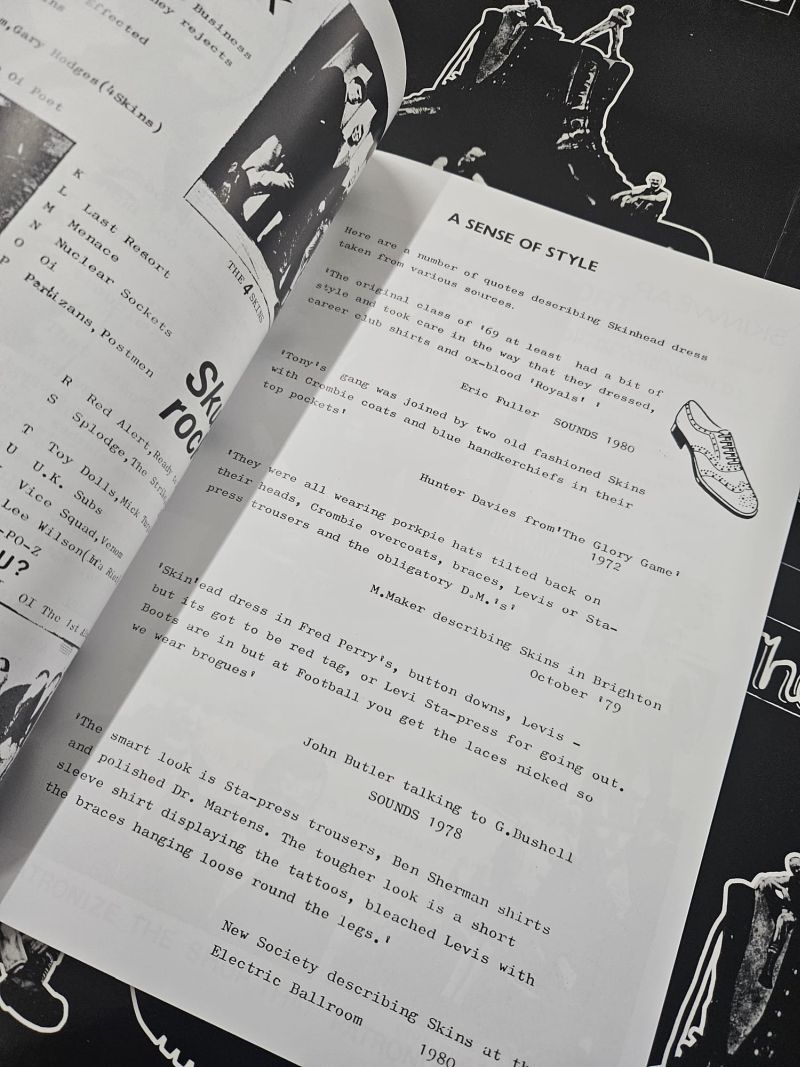 Business
rejects
Effected
Gary Hodges(4Skins)
Oi Poet
K
L Last Resort
M Menace
N Nuclear Sockets
O Oi
P Partizans, Postmen
THE 4 SKINS
R Red Alert, Ready
S Splodge, The Strike
T Toy Dolls, Mick
U U.K. Subs
Vice Squad, Venom
Lee Wilson(
-PO-Z
U?
OI The 1st
A SENSE OF STYLE
Here are a number of quotes describing Skinhead dress
taken from various sources.
'The original class of '69 at least had a bit of
style and took care in the way that they dressed,
career club shirts and ox-blood 'Royals' '
Eric Fuller SOUNDS 1980
'Tony's gang was joined by two old fashioned Skins
with Crombie coats and blue handkerchiefs in their
top pockets'
Hunter Davies from'The Glory Game'
1972
'They were all wearing porkpie hats tilted back on
their heads, Crombie overcoats, braces, Levis or Sta-
press trousers and the obligatory D.M.'s'
M.Maker describing Skins in Brighton
October '79
'Skin'ead dress in Fred Perry's, button downs, Levis -
but its got to be red tag, or Levi Sta-press for going out.
Boots are in but at Football you get the laces nicked so
we wear brogues'
John Butler talking to G.Bushell
SOUNDS 1978
'The smart look is Sta-press trousers, Ben Sherman shirts
and polished Dr. Martens. The tougher look is a short
sleeve shirt displaying the tattoos, bleached Levis with
the braces hanging loose round the legs.'
New Society describing Skins at the
Electric Ballroom
1980